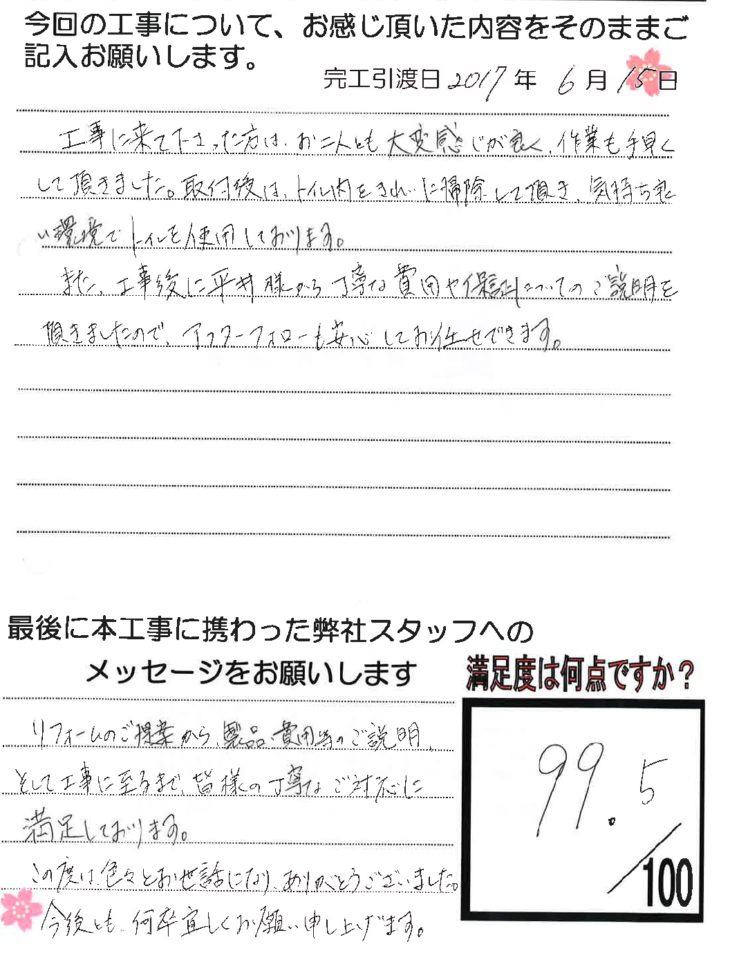 今回の工事について、お感じ頂いた内容をそのままご
記入お願いします。
完工引渡日 2017 年 6 月 15 日
工事に来て下さった方は、お二人とも大変感じが良く、作業も手早く
して頂きました。取付後は、トイレ内をきれいに掃除して頂き、気持ち良
い環境でトイレを使用しております。
また、工事後に平井様から丁寧な費用や保証についてのご説明を
頂きましたので、アフターフォローも安心してお任せできます。
最後に本工事に携わった弊社スタッフへの
メッセージをお願いします
リフォームのご提案から、製品、費用等のご説明、
そして工事に至るまで、皆様の丁寧なご対応に
満足しております。
この度は色々とお世話になり、ありがとうございました。
今後とも、何卒宜しくお願い申し上げます。
満足度は何点ですか？
99.5
/100